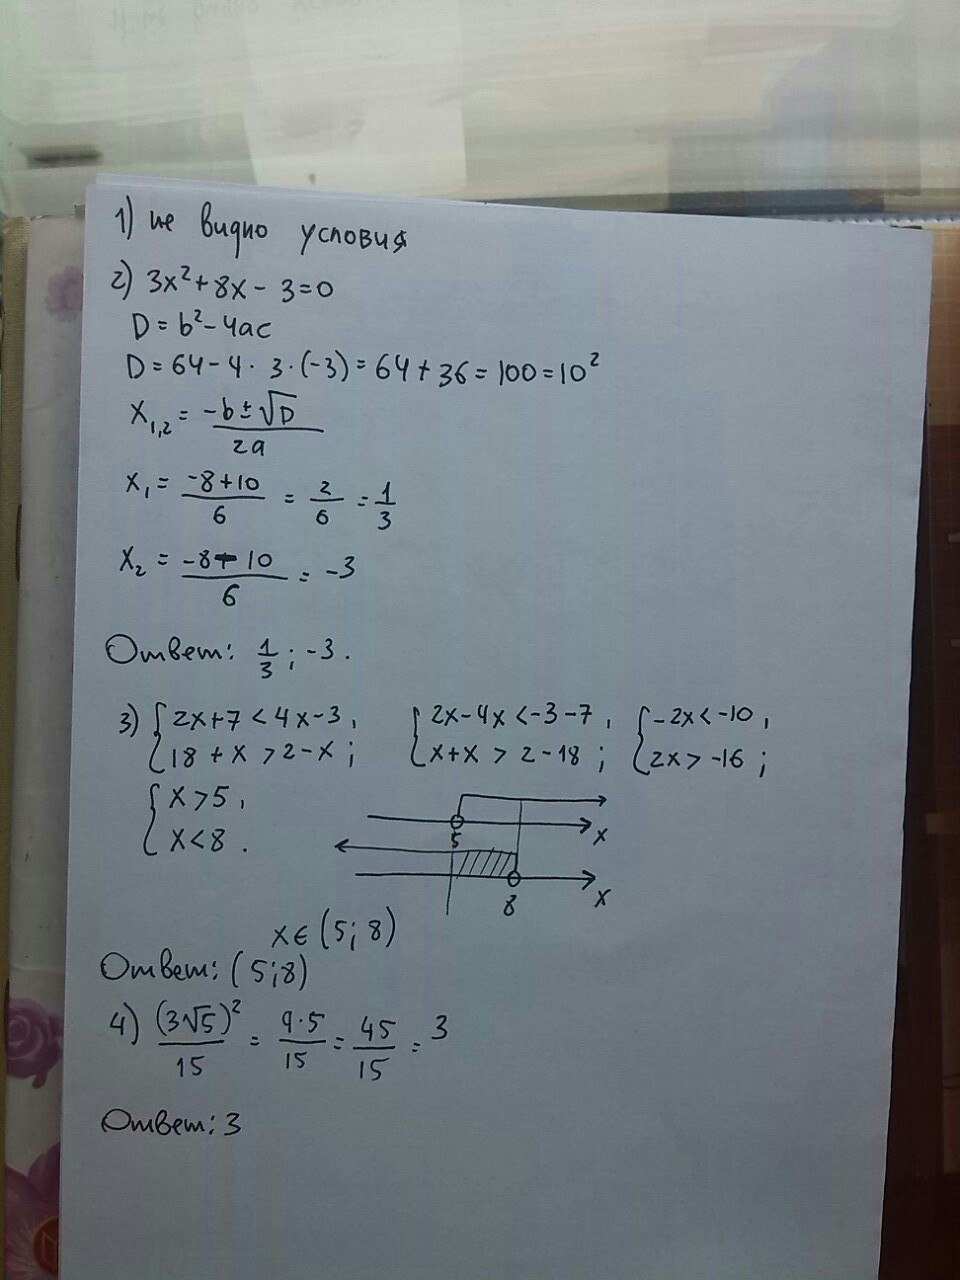 1) не видно условия
2) 3x²+8x-3=0
D=b²-4ac
D=64-4·3·(-3)=64+36=100=10²
x₁,₂ = (-b±√D)/2a
x₁ = (-8+10)/6 = 2/6 = 1/3
x₂ = (-8-10)/6 = -3
Ответ: 1/3; -3.
3) {2x+7<4x-3, {2x-4x<-3-7, {-2x<-10,
{18+x>2-x; {x+x>2-18; {2x>-16;
{x>5,
{x<8.
5 x
8 x
x∈(5;8)
Ответ: (5;8)
4) (3√5)²/15 = 9·5/15 = 45/15 = 3
Ответ: 3